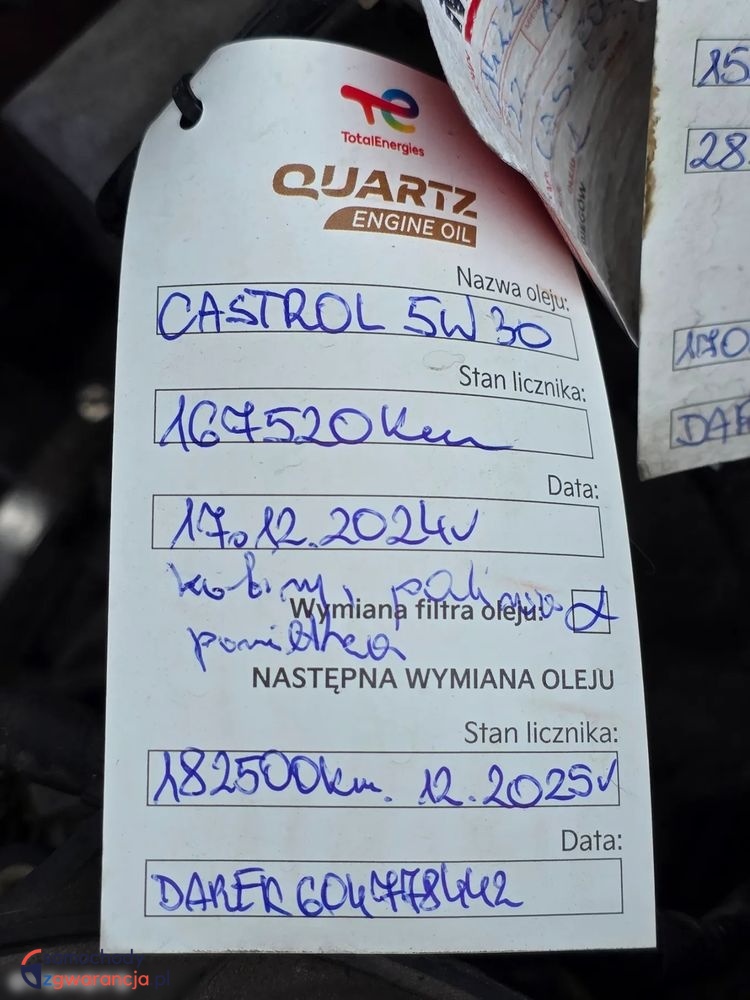 TotalEnergies
QUARTZ
ENGINE OIL
Nazwa oleju:
CASTROL 5W30
Stan licznika:
167520km
Data:
17.12.2024r
kabiny, paliwa
Wymiana filtra oleju:
powietrza
NASTĘPNA WYMIANA OLEJU
Stan licznika:
182500km. 12.2025r
Data:
DAREK 604778442
15
28
170
DAR
zgwarancja.pl